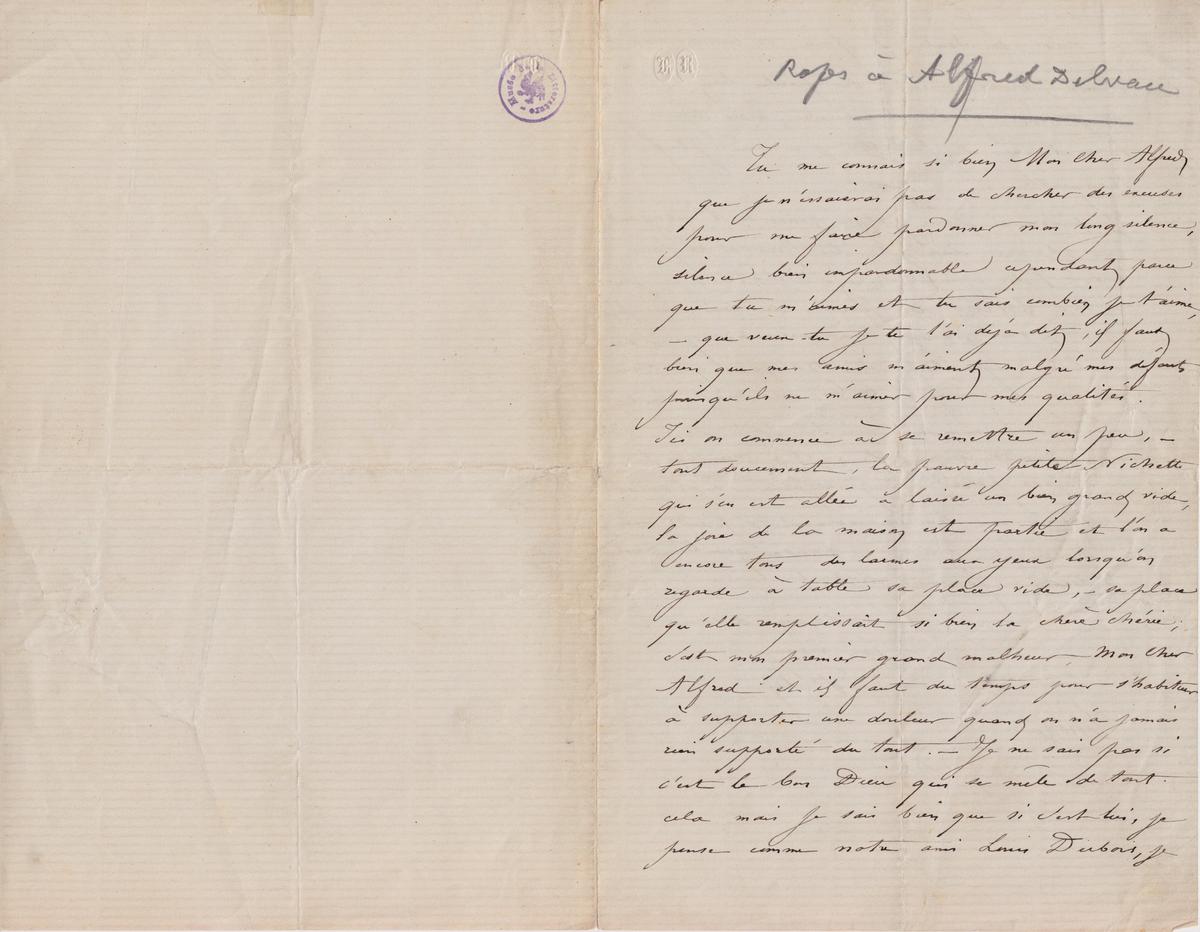 Musée de la Littérature
Rops à Alfred Delvau
Tu me connais si bien Mon Cher Alfred
que je n'essaierai pas de chercher des excuses
pour me faire pardonner mon long silence,
silence bien impardonnable cependant parce
que tu m'aimes et tu sais combien je t'aime,
– que veux-tu je te l'ai déjà dit, il faut
bien que mes amis m'aiment malgré mes défauts
puisqu'ils ne m'aiment pour mes qualités.
Ici on commence à se remettre un peu, –
tout doucement, la pauvre petite Nichette
qui s'en est allée a laissé un bien grand vide,
la joie de la maison est partie et l'on a
encore tous des larmes aux yeux lorsqu'on
regarde à table sa place vide, – sa place
qu'elle remplissait si bien la chère chérie;
c'est mon premier grand malheur Mon Cher
Alfred et il faut du temps pour s'habituer
à supporter une douleur quand on n'a jamais
rien supporté du tout. – Je ne sais pas si
c'est le bon Dieu qui se mêle de tout
cela mais je sais bien que si c'est lui, je
pense comme notre ami Louis Dubois, je